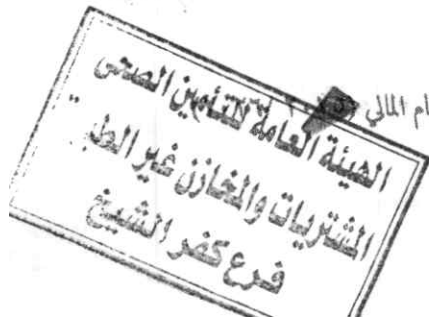 ام المالي
الهيئة العامة للتأمين الصحى
المشتريات والمخازن غير الطب
فرع كفر الشيخ